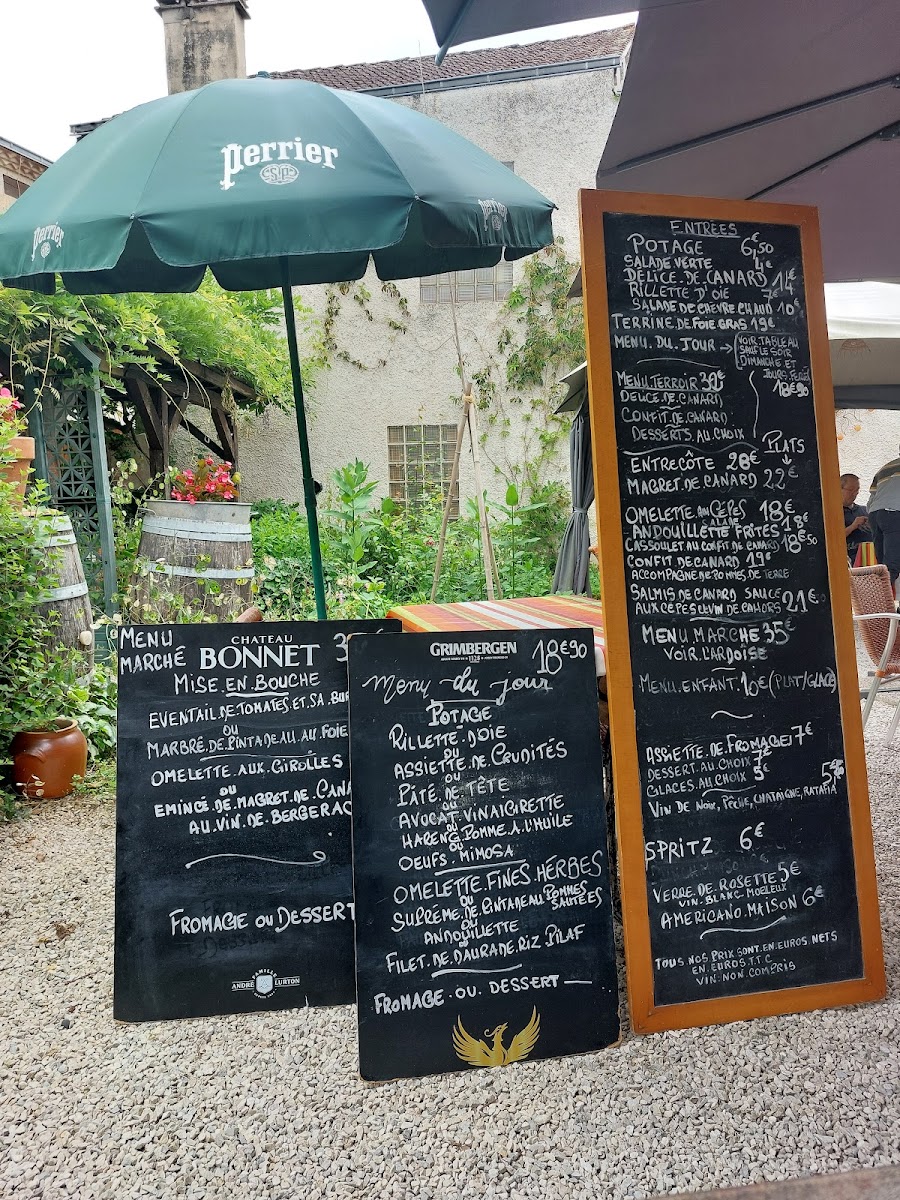 perrier
perrier
perrier
MENU
MARCHÉ
CHATEAU
BONNET
MISE.EN.BOUCHE
EVENTAIL.DE TOMATES.ET.SA.
OU
MARBRÉ.DE.PINTADEAU.AU.FOIE
OMELETTE.AUX.GIROLLES
OU
EMINCÉ.DE.MAGRET.DE.
AU.VIN.DE.BERGERAC
FROMAGE OU DESSERT
FAMILLE
ANDRÉ LURTON
GRIMBERGEN
18€90
Menu du jour
POTAGE
RILLETTE.D'OIE
OU
ASSIETTE.DE.CRUDITÉS
OU
PÂTÉ.DE.TÊTE
OU
AVOCAT.VINAIGRETTE
OU
HARENG.POMME.A.L'HUILE
OU
OEUFS.MIMOSA
OMELETTE.FINES.HERBES
OU
SUPRÊME.DE.PINTADEAU.POMMES SAUTÉES
OU
ANDOUILLETTE
OU
FILET.DE.DAURADE.RIZ.PILAF
FROMAGE.OU.DESSERT
ENTRÉES
POTAGE 6€,50
SALADE VERTE 4€
DELICE DE CANARD 14€
RILLETTE D'OIE 7€
SALADE DE CHEVRE CHAUD 10€
TERRINE DE FOIE GRAS 19€
MENU.DU.JOUR → VOIR TABLEAU
SAUF LE SOIR
DIMANCHE ET
JOURS FERIÉS
18€90
MENU.TERROIR 30€
DELICE.DE.CANARD
CONFIT.DE.CANARD
DESSERTS.AU.CHOIX
PLATS
ENTRECÔTE 28€
MAGRET DE CANARD 22€
OMELETTE AUX CÈPES 18€
ANDOUILLETTE FRITES 18€
CASSOULET AU CONFIT DE CANARD 18€50
CONFIT DE CANARD 19€
ACCOMPAGNE DE POMMES DE TERRE
SALMIS DE CANARD SAUCE
AUX CEPES ET VIN DE CAHORS 21€
MENU MARCHÉ 35€
VOIR L'ARDOISE
MENU.ENFANT.10€ (PLAT/GLACE)
ASSIETTE.DE.FROMAGES 7€
DESSERT.AU.CHOIX 7€
GLACES.AU.CHOIX 5€
VIN DE NOIX, PÊCHE, CHATAIGNE, RATAFIA 5€
SPRITZ 6€
VERRE.DE.ROSETTE 5€
VIN.BLANC.MOELLEUX
AMERICANO.MAISON 6€
TOUS.NOS.PRIX.SONT.EN.EUROS.NETS
EN.EUROS.T.T.C
VIN.NON.COMPRIS